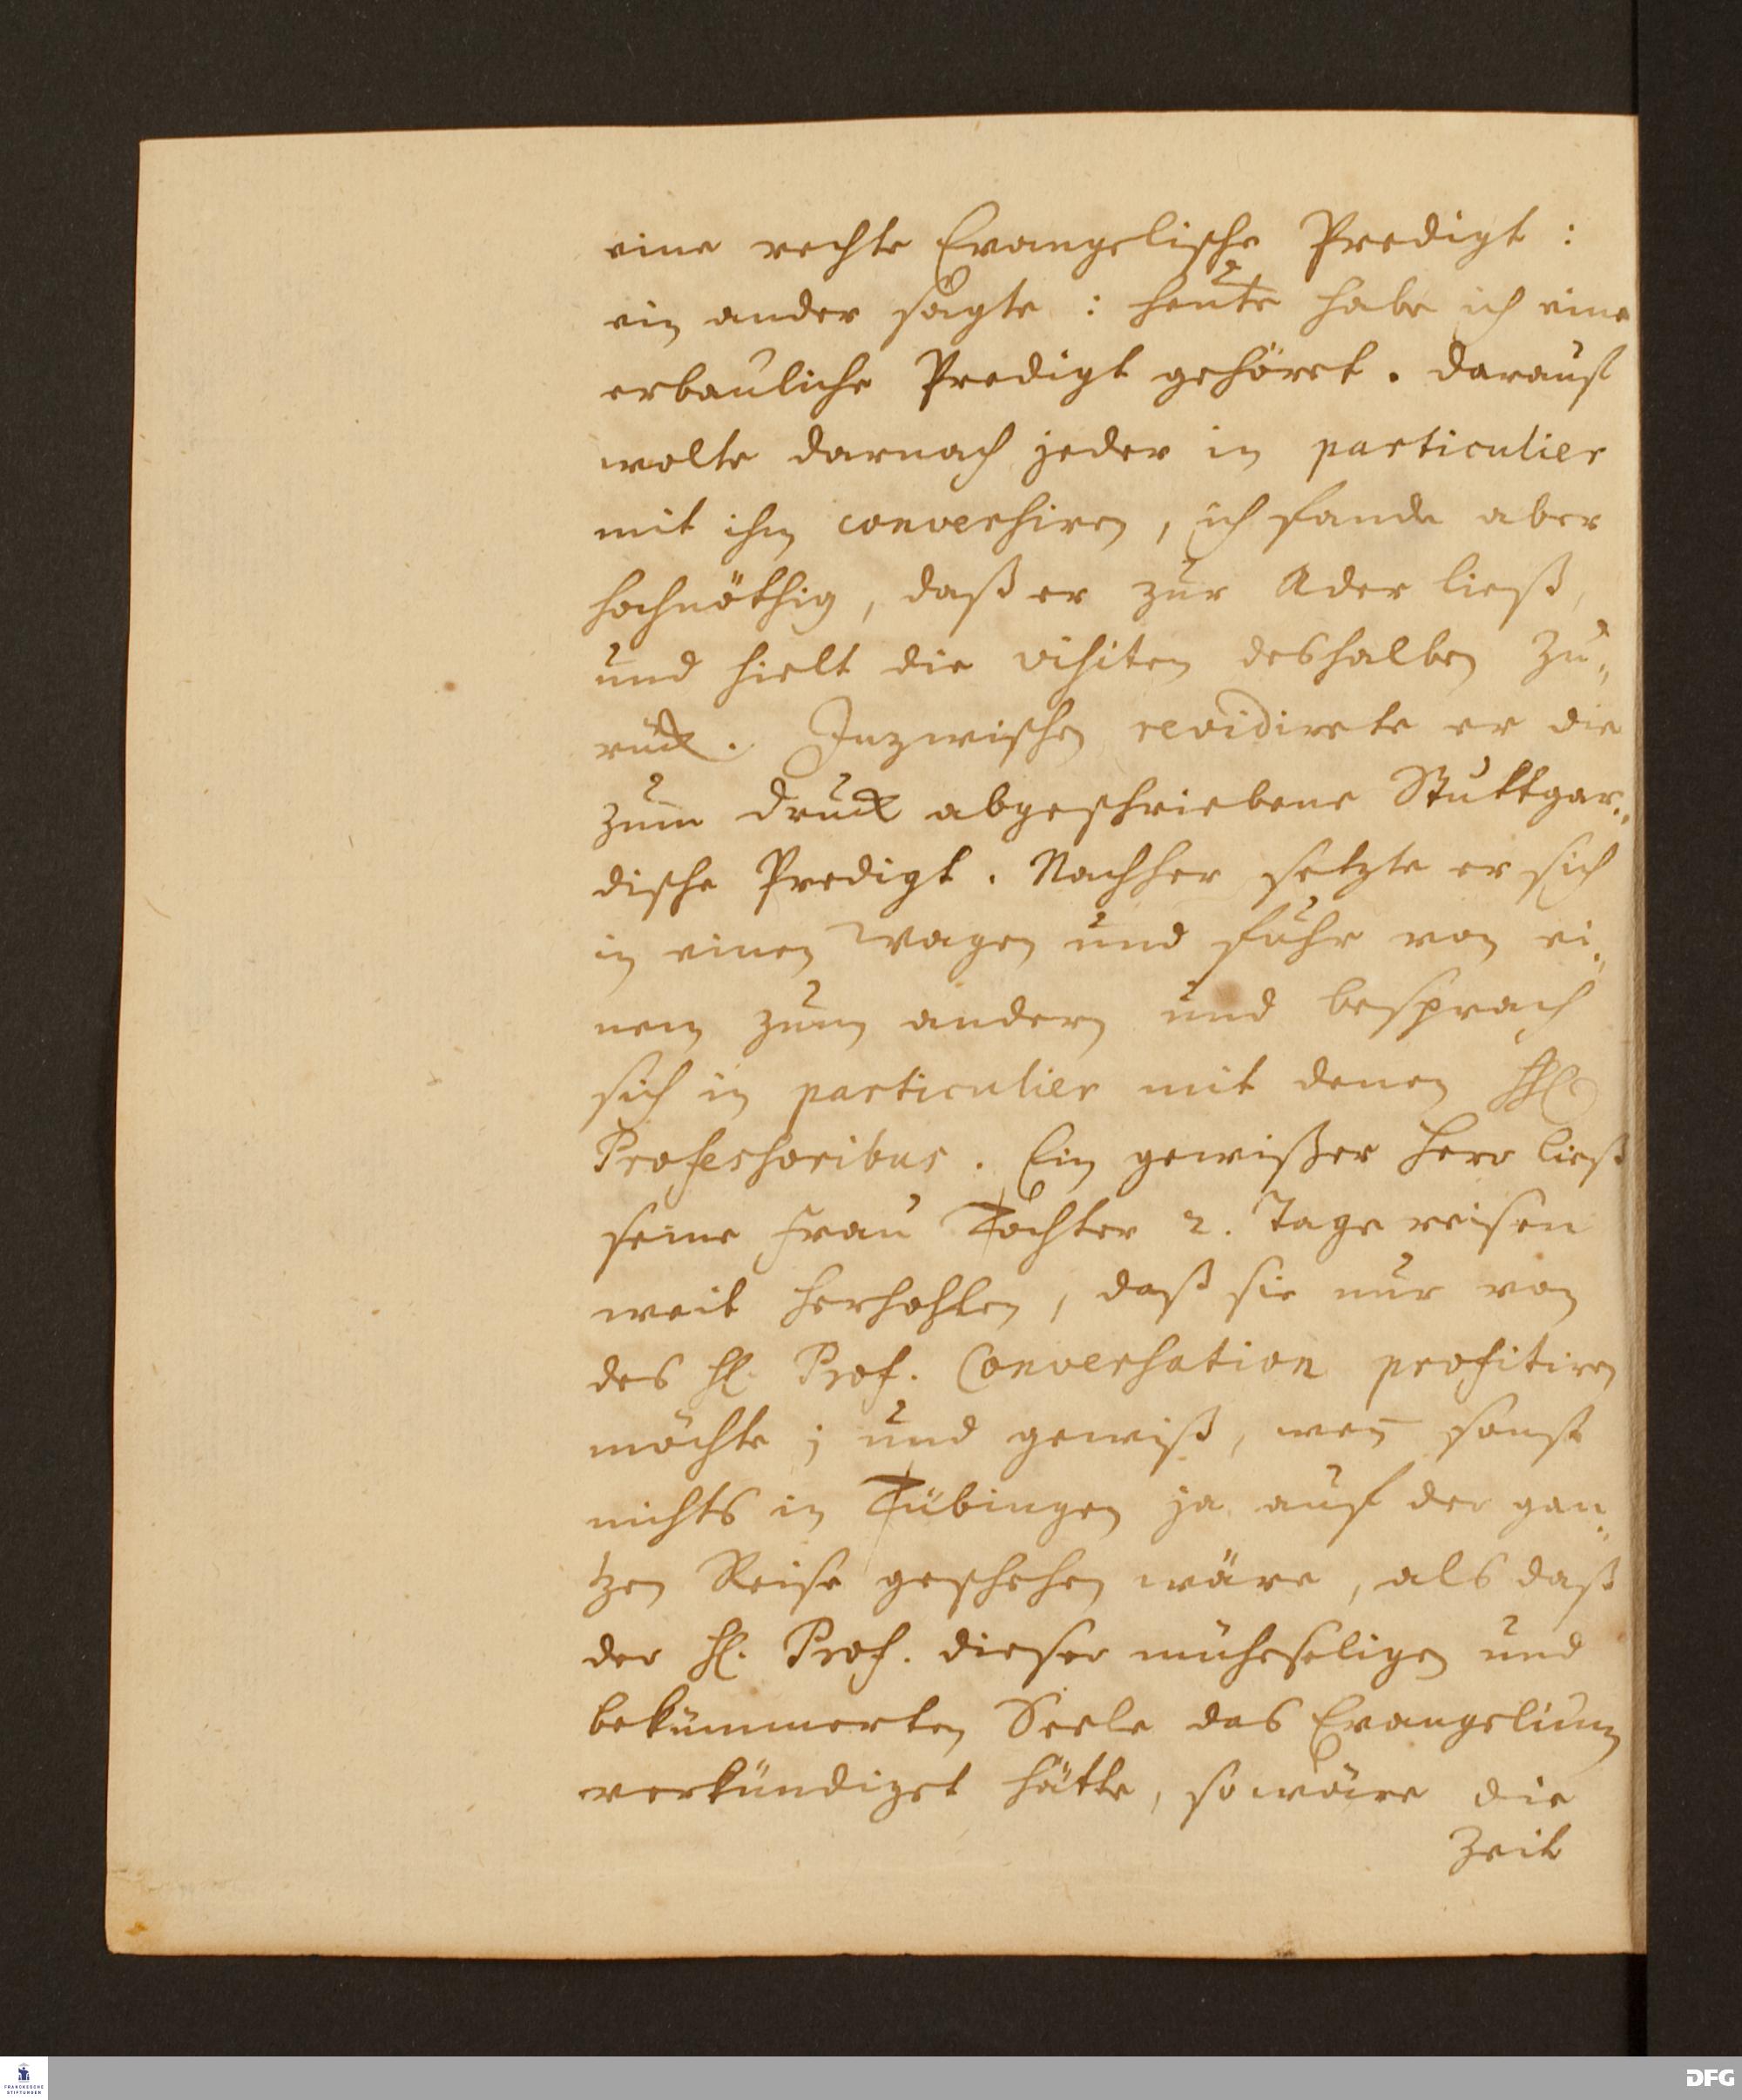 eine rechte Evangelische Predigt :
ein ander sagte : heute habe ich eine
erbauliche Predigt gehöret. Darauf
wolte darnach jeder in particulier
mit ihm conversiren, ich fande aber
hochnöthig, daß er zur Ader ließ,
und hielt die visiten deshalben zu„
rück. Inzwischen revidirete er die
zum Druck abgeschriebene Stuttgar„
dische Predigt. Nachher setzte er sich
in einen Wagen und fuhr von ei„
nem zum andern und besprach
sich in particulier mit denen HH.
Professoribus. Ein gewißer Herr ließ
seine Frau Tochter 2. Tage reisen
weit herhohlen, daß sie nur von
des H. Prof. Conversation profitiren
möchte ; und gewiß, wen̄ sonst
nichts in Tübingen ja auf der gan„
tzen Reise geschehen wäre, als daß
der H. Prof. dieser mühseligen und
bekümmerten Seele das Evangelium
verkündiget hätte, so wäre die
Zeit
FRANCKESCHE
STIFTUNGEN
DFG